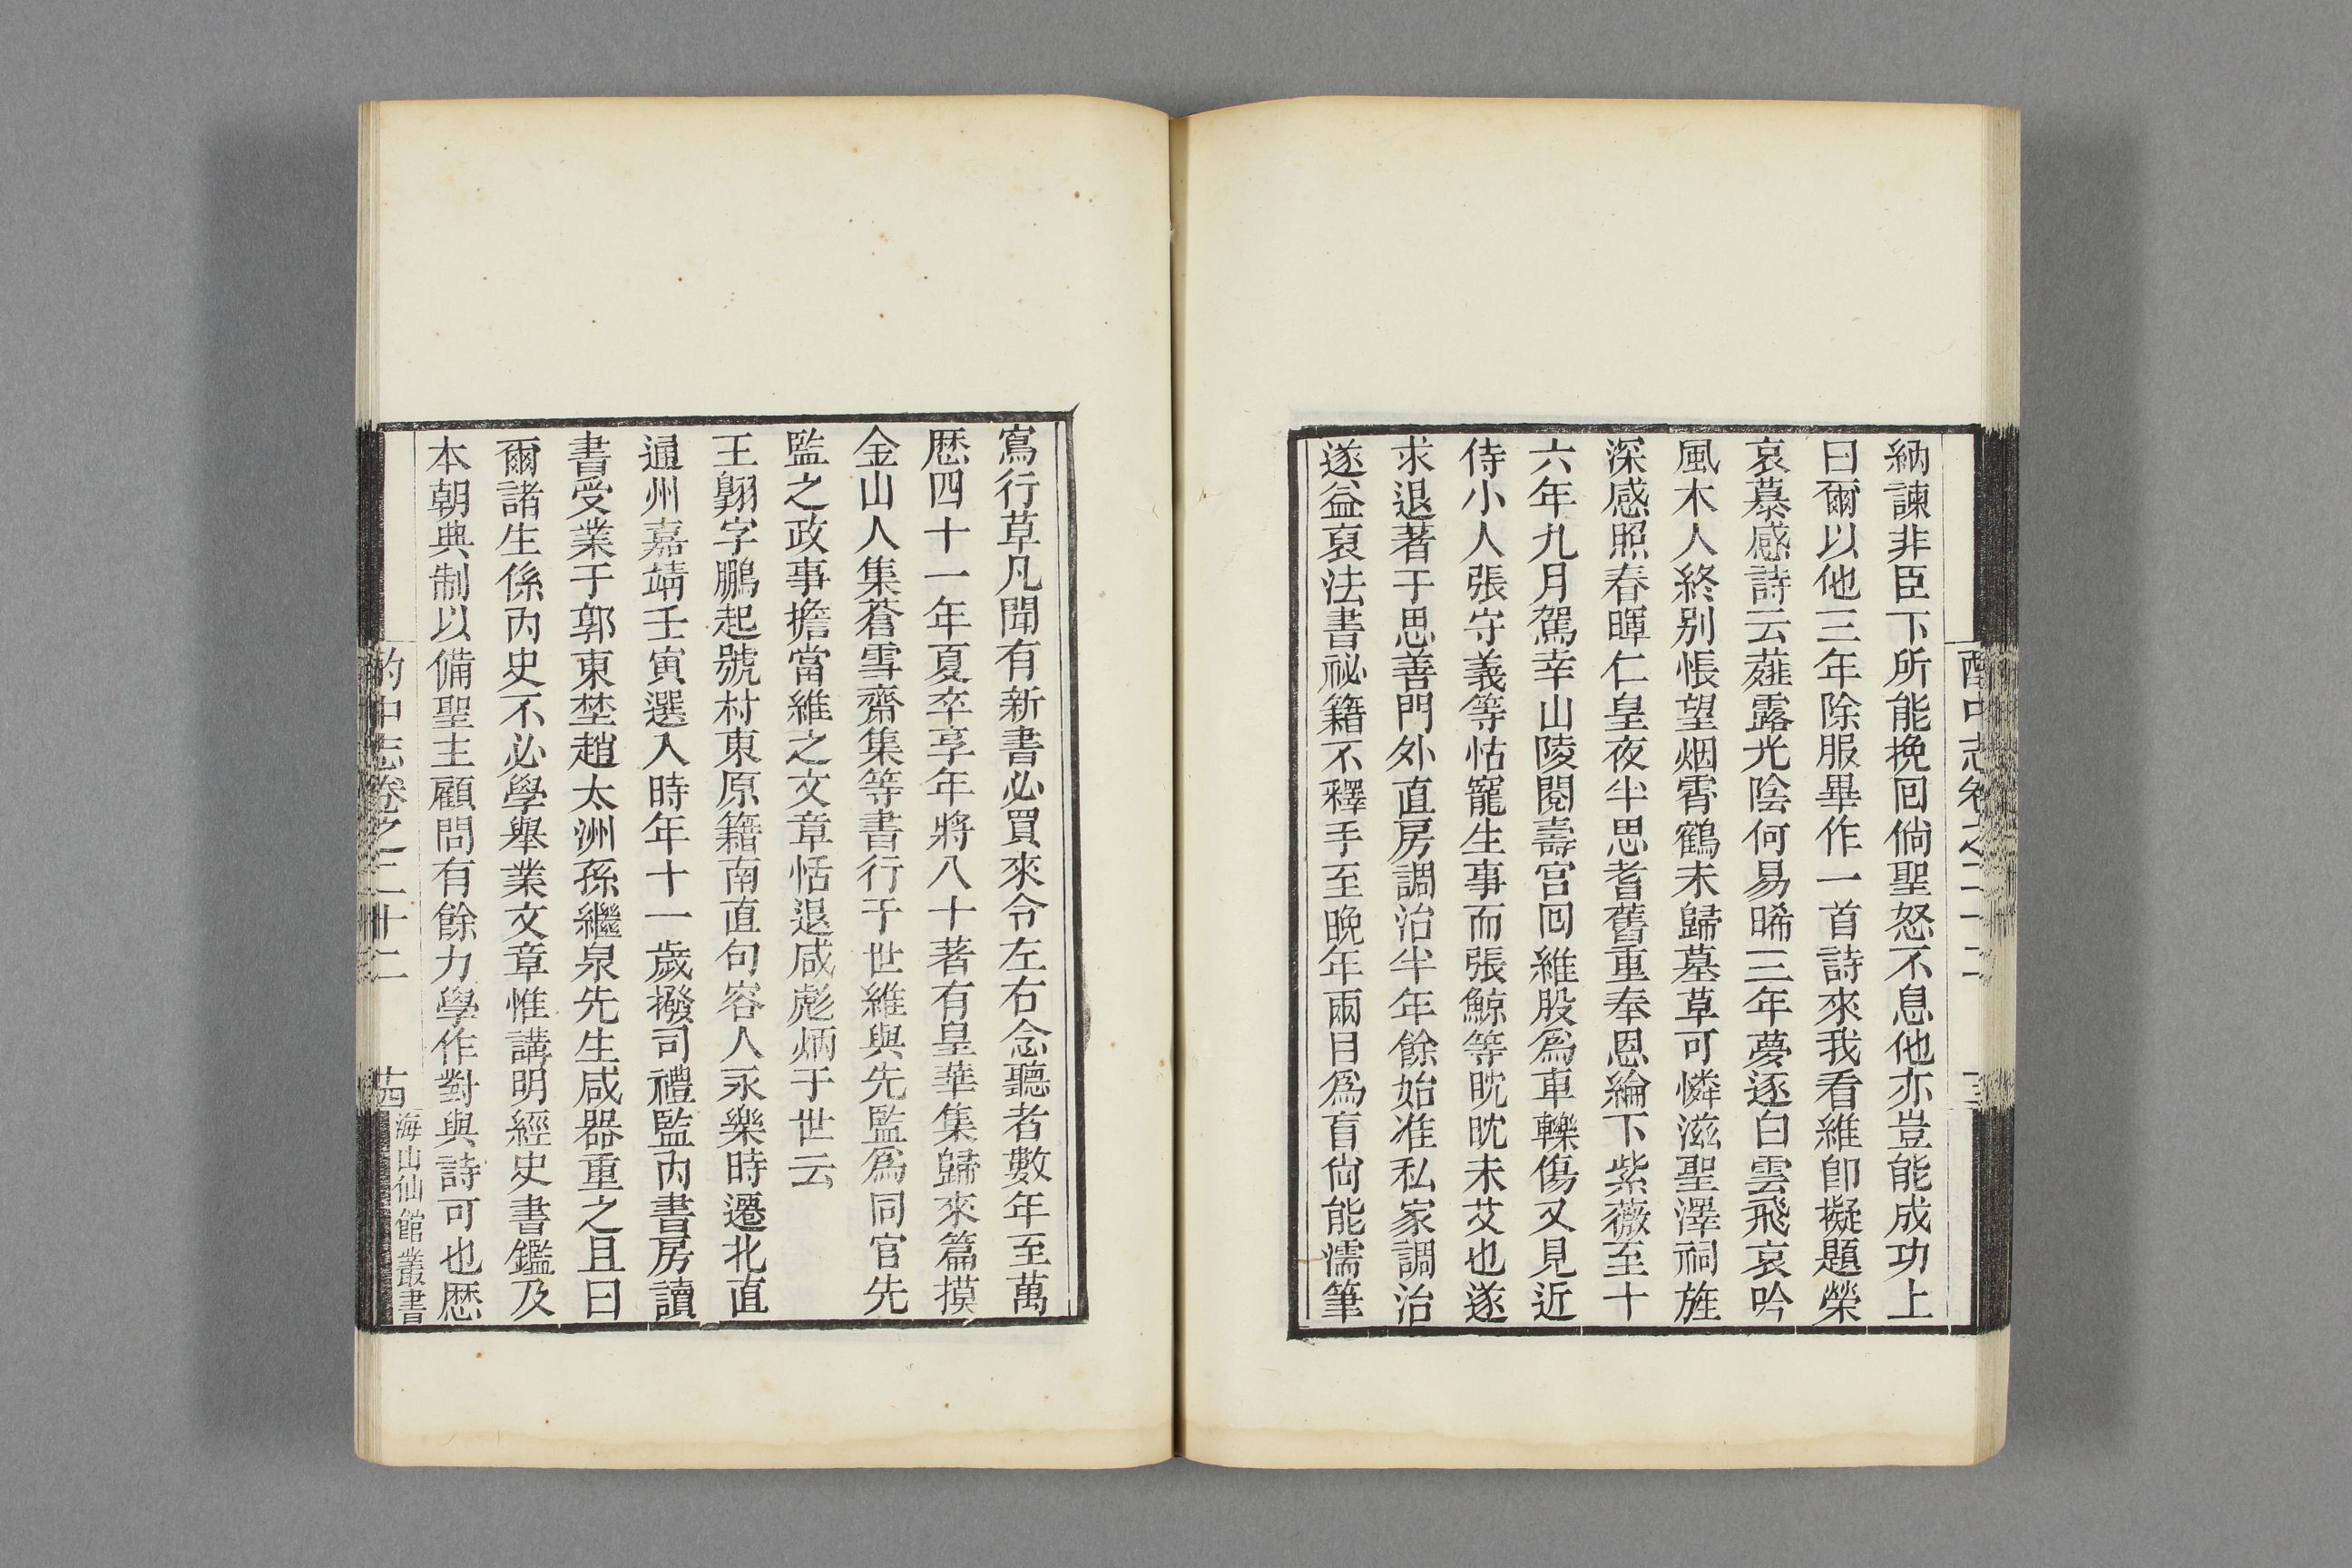 納諫非臣下所能挽回倘聖怒不息他亦豈能成功上
曰爾以他三年除服畢作一首詩來我看維卽擬題榮
哀慕感詩云薤露光陰何易晞三年夢逐白雲飛哀吟
風木人終别悵望烟霄鶴未歸墓草可憐滋聖澤祠旌
深感照春暉仁皇夜半思耆舊重奉恩綸下紫薇至十
六年九月駕幸山陵閱壽宫回維股爲車轢傷又見近
侍小人張守義等怙寵生事而張鯨等眈眈未艾也遂
求退著于思善門外直房調治半年餘始准私家調治
遂益裒法書祕籍不釋手至晩年兩目爲盲尙能濡筆
寫行草凡聞有新書必買來令左右念聽者數年至萬
厯四十一年夏卒享年將八十著有皇華集歸來篇摸
金山人集蒼雪齋集等書行于世維與先監爲同官先
監之政事擔當維之文章恬退咸彪炳于世云
王翺字鵬起號村東原籍南直句容人永樂時遷北直
通州嘉靖壬寅選入時年十一歲撥司禮監內書房讀
書受業于郭東埜趙太洲孫繼泉先生咸器重之且曰
爾諸生係內史不必學舉業文章惟講明經史書鑑及
本朝典制以備聖主顧問有餘力學作對與詩可也厯
酌中志卷之二十二 十四 海山仙館叢書